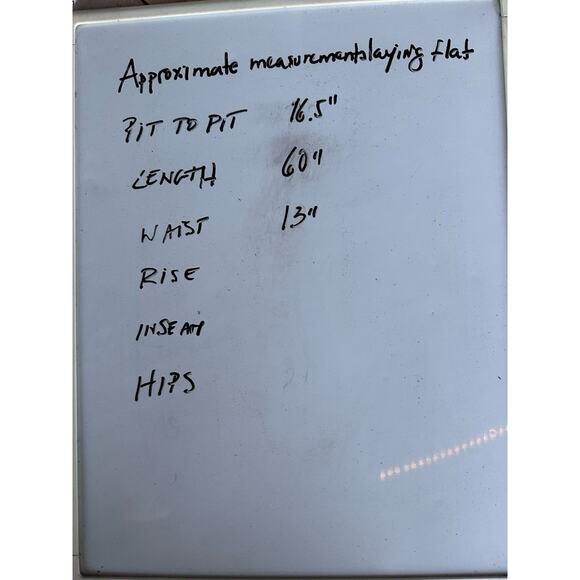 Approximate measurement laying flat
PIT TO PIT 16.5"
LENGTH 60"
WAIST 13"
RISE
INSEAM
HIPS